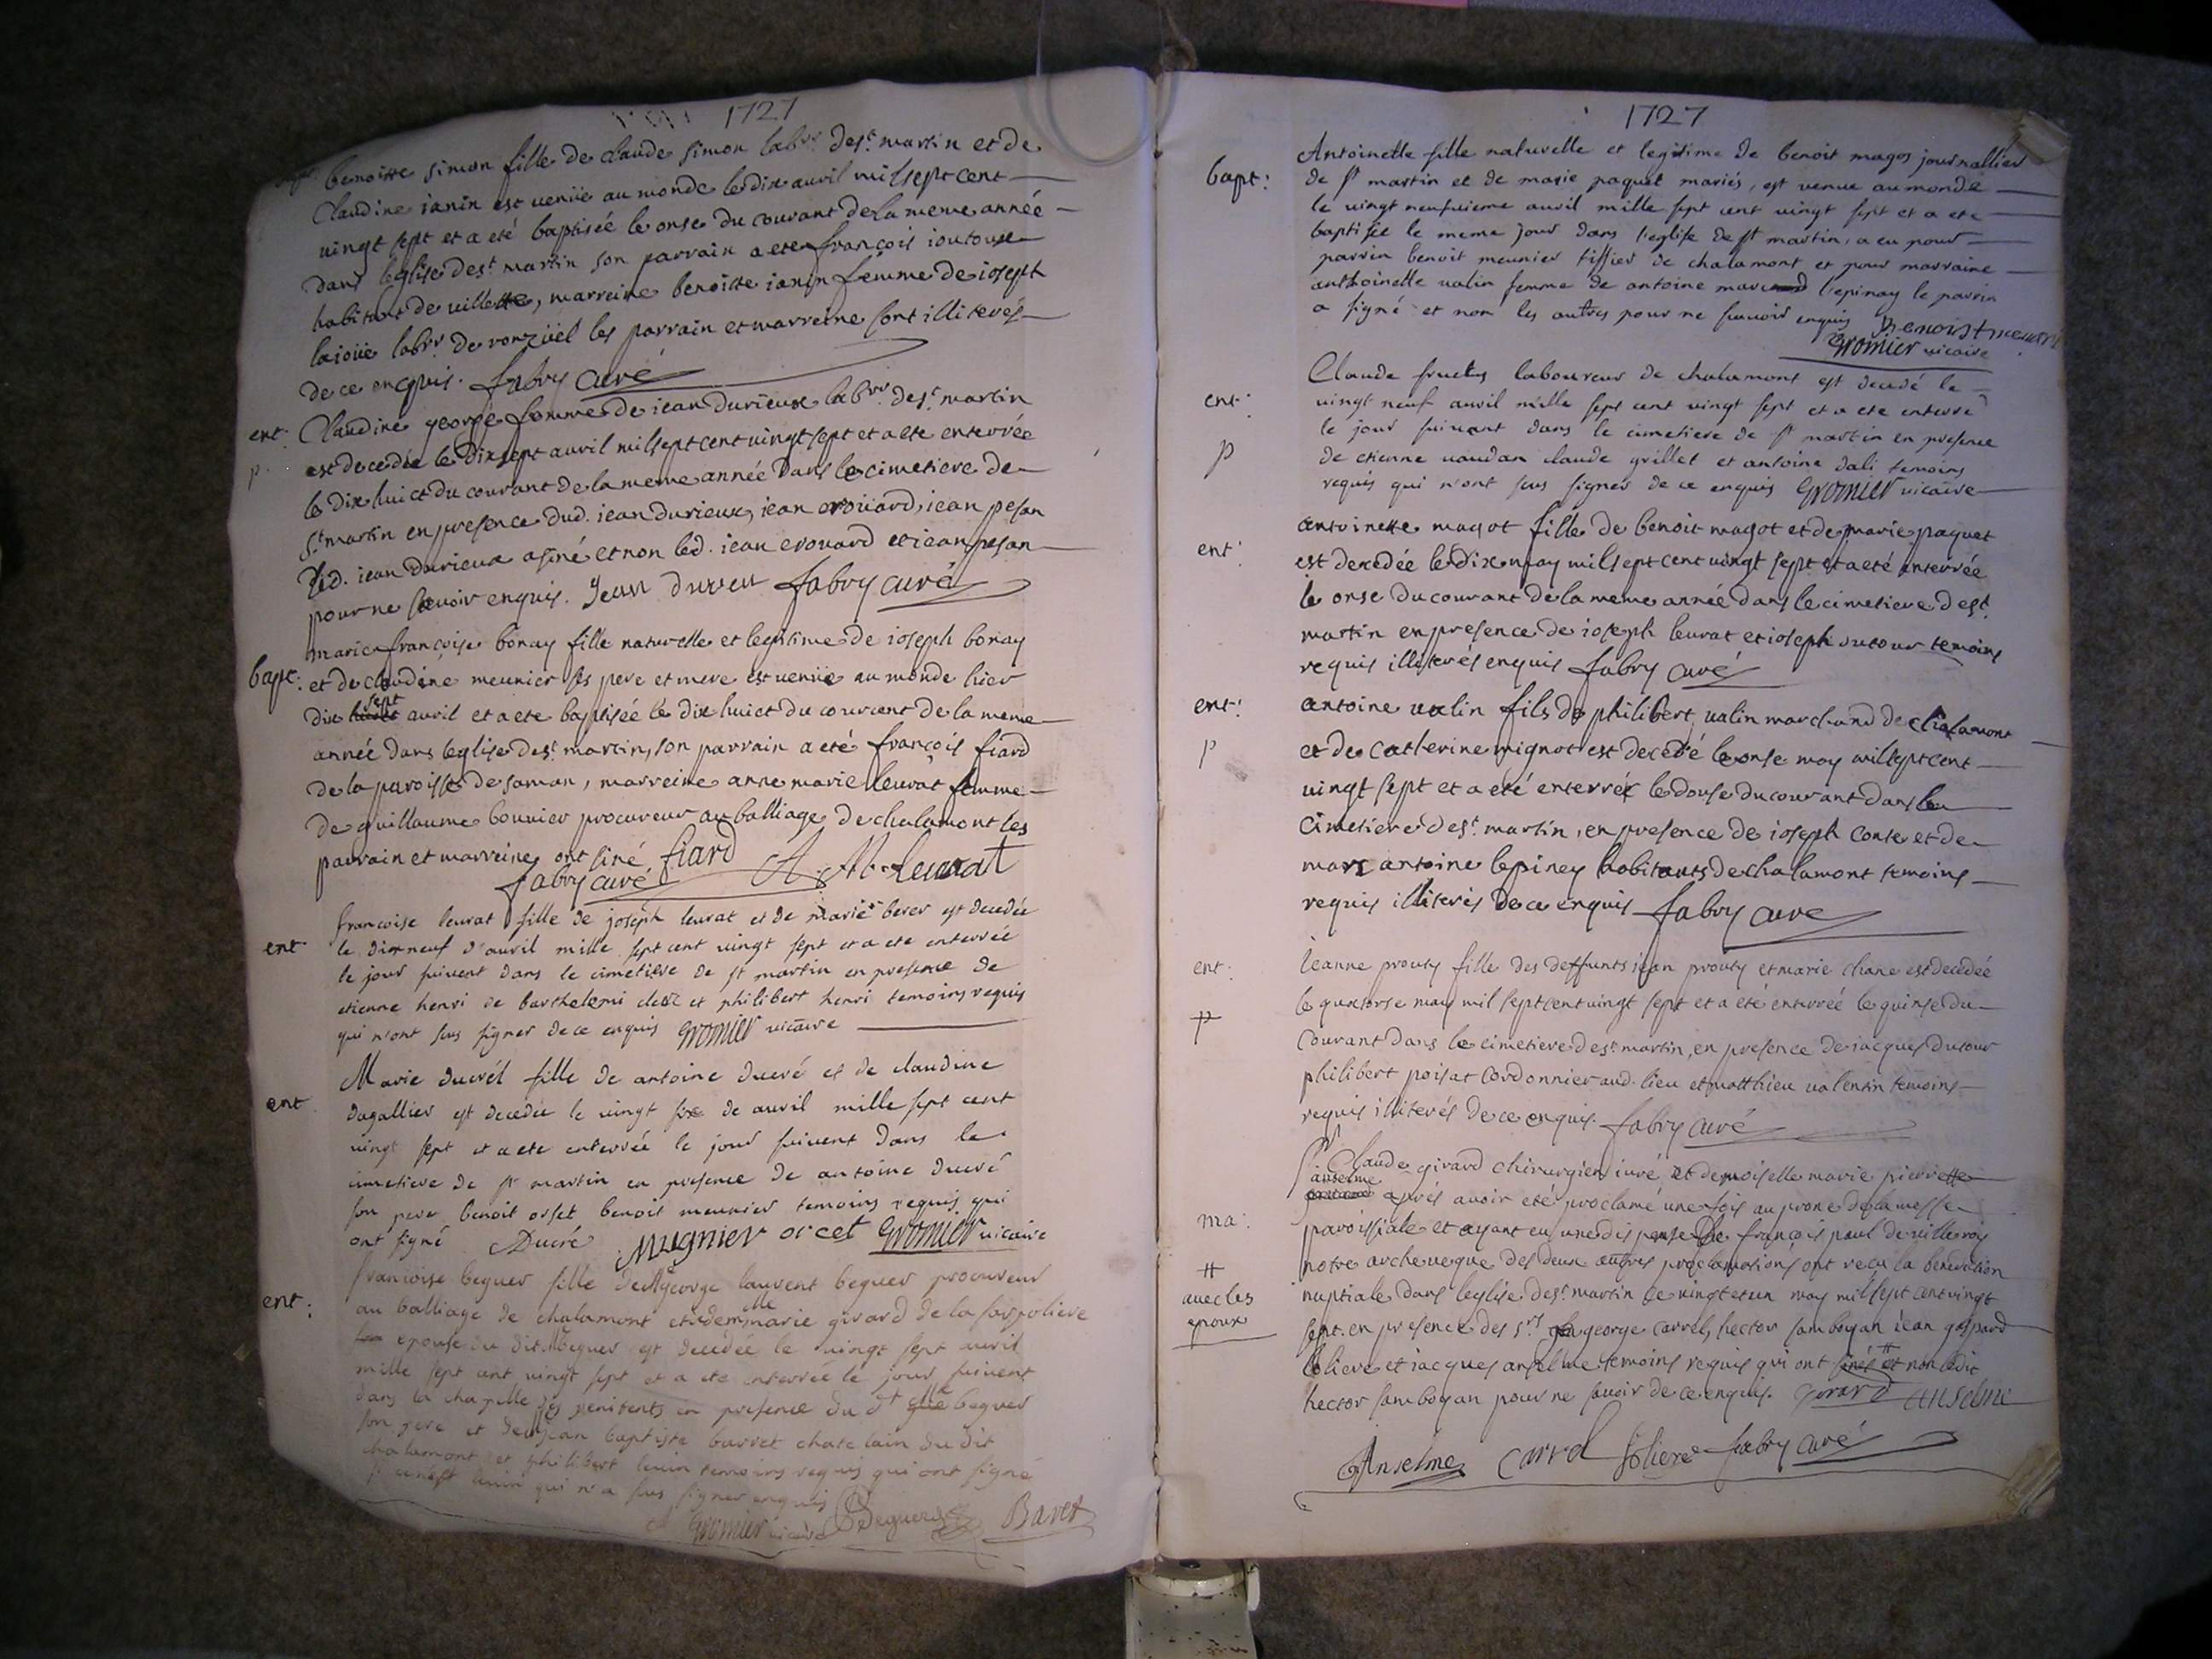 1727
benoitte simon fille de claude simon labr. de st. martin et de
Claudine ianin est venüe au monde le dix avril mil sept cent
vingt sept et a eté baptisée le onse du courant de la meme année
dans leglise de st. martin son parrain a ete françois
habitant de villette, marreine benoitte ianin femme de ioseph
laioüe labr. de ronzüel les parrain et marreine sont illiterés
de ce enquis. fabry curé
ent:
p.
Claudine george femme de iean durieux labr. de st. martin
est decedée le dix sept avril mil sept cent vingt sept et a ete enterrée
le dix huict du courant de la meme année dans le cimetiere de
st. martin en presence dud. iean durieux, iean iean pesan
led. iean durieux a siné et non led. iean et iean pesan
pour ne sçavoir enquis. Jean durieu fabry curé
bapt:
marie françoise bonay fille naturelle et legitime de ioseph bonay
et de claudine meunier ses pere et mere est venüe au monde hier
dix sept avril et a ete baptisée le dix huict du courent de la meme
année dans leglise de st. martin, son parrain a eté françois fiard
de la paroisse de saman, marreine anne marie leurat femme
de guillaume bouvier procureur au balliage de chalamont les
parrain et marreine ont siné fiard A. M. Leurat
fabry curé
ent
francoise leurat fille de joseph leurat et de marie berer est decedée
le dix neuf d'avril mille sept cent vingt sept et a ete enterrée
le jour suivent dans le cimetiere de st martin en presence de
etienne henri de barthelemi et philibert henri temoins requis
qui n'ont sus signer de ce enquis Gromier vicaire
ent
Marie ducré fille de antoine ducré et de claudine
dagallier est decedée le vingt six de avril mille sept cent
vingt sept et a ete enterrée le jour suivent dans le
cimetiere de st martin en presence de antoine ducré
son pere benoit orset benoit meunier temoins requis qui
ont signé Ducré Mugnier orcet Gromier vicaire
ent:
francoise beguer fille de Mr george laurent beguer procureur
au balliage de chalamont et de demlle marie girard de la
epouse du dit Mr beguer est decedée le vingt sept avril
mille sept cent vingt sept et a ete enterrée le jour suivent
dans la chapelle des penitents en presence du dt beguer
son pere et de jean baptiste barret chatelain du dit
chalamont et philibert temoins requis qui ont signé
qui n'a sus signer enquis
Gromier vicaire Beguer Baret
1727
bapt:
Antoinette fille naturelle et legitime de benoit magos journallier
de st martin et de marie paquet mariés, est venue au monde
le vingt neufvieme avril mille sept cent vingt sept et a ete
baptisée le meme jour dans l'eglise de st martin, a eu pour
parrin benoit meunier tissier de chalamont et pour marraine
anthoinette valin femme de antoine marc l'epinay le parrin
a signé et non les autres pour ne sçavoir enquis Benoist meunie
Gromier vicaire
ent:
p
Claude laboureur de chalamont est decedé le
vingt neuf avril mille sept cent vingt sept et a ete enterré
le jour suivant dans le cimetiere de st martin en presence
de etienne vaudan claude grillet et antoine dali temoins
requis qui n'ont sus signer de ce enquis Gromier vicaire
ent:
antoinette magot fille de benoit magot et de marie paquet
est decedée le dix may mil sept cent vingt sept et a eté enterrée
le onse du courant de la meme année dans le cimetiere de st.
martin en presence de ioseph leurat et ioseph dutour temoins
requis illiterés enquis fabry curé
ent:
p
antoine valin fils de philibert valin marchand de chalamont
et de catherine mignot est decedé le onse may mil sept cent
vingt sept et a eté enterré le douse du courant dans le
cimetiere de st. martin, en presence de ioseph conte et de
marc antoine lepiney habitants de chalamont temoins
requis illiterés de ce enquis fabry curé
ent:
p
ieanne prouty fille des deffunts iean prouty et marie chane est decedée
le quatorse may mil sept cent vingt sept et a eté enterrée le quinse du
courant dans le cimetiere de st. martin, en presence de iacques dutour
philibert poisat cordonnier aud. lieu et matthieu valentin temoins
requis illiterés de ce enquis. fabry curé
ma:
#
avec les
epoux
Sr. Claude girard chirurgien iuré et demoiselle marie pierrette
anselme
aprés avoir eté proclamé une fois au prone de la messe
paroissiale et ayant eu une dispense de françois paul de villeroy
notre archeveque des deux autres proclamations ont reçu la benediction
nuptiale dans leglise de st. martin le vingt et un may mil sept cent vingt
sept. en presence des srs george carrel, hector sambogan iean gaspard
soliere et iacques anselme temoins requis qui ont sinés # et non ledit
hector sambogan pour ne savoir de ce enquis. Girard anselme
Anselme Carrel Soliere fabry curé